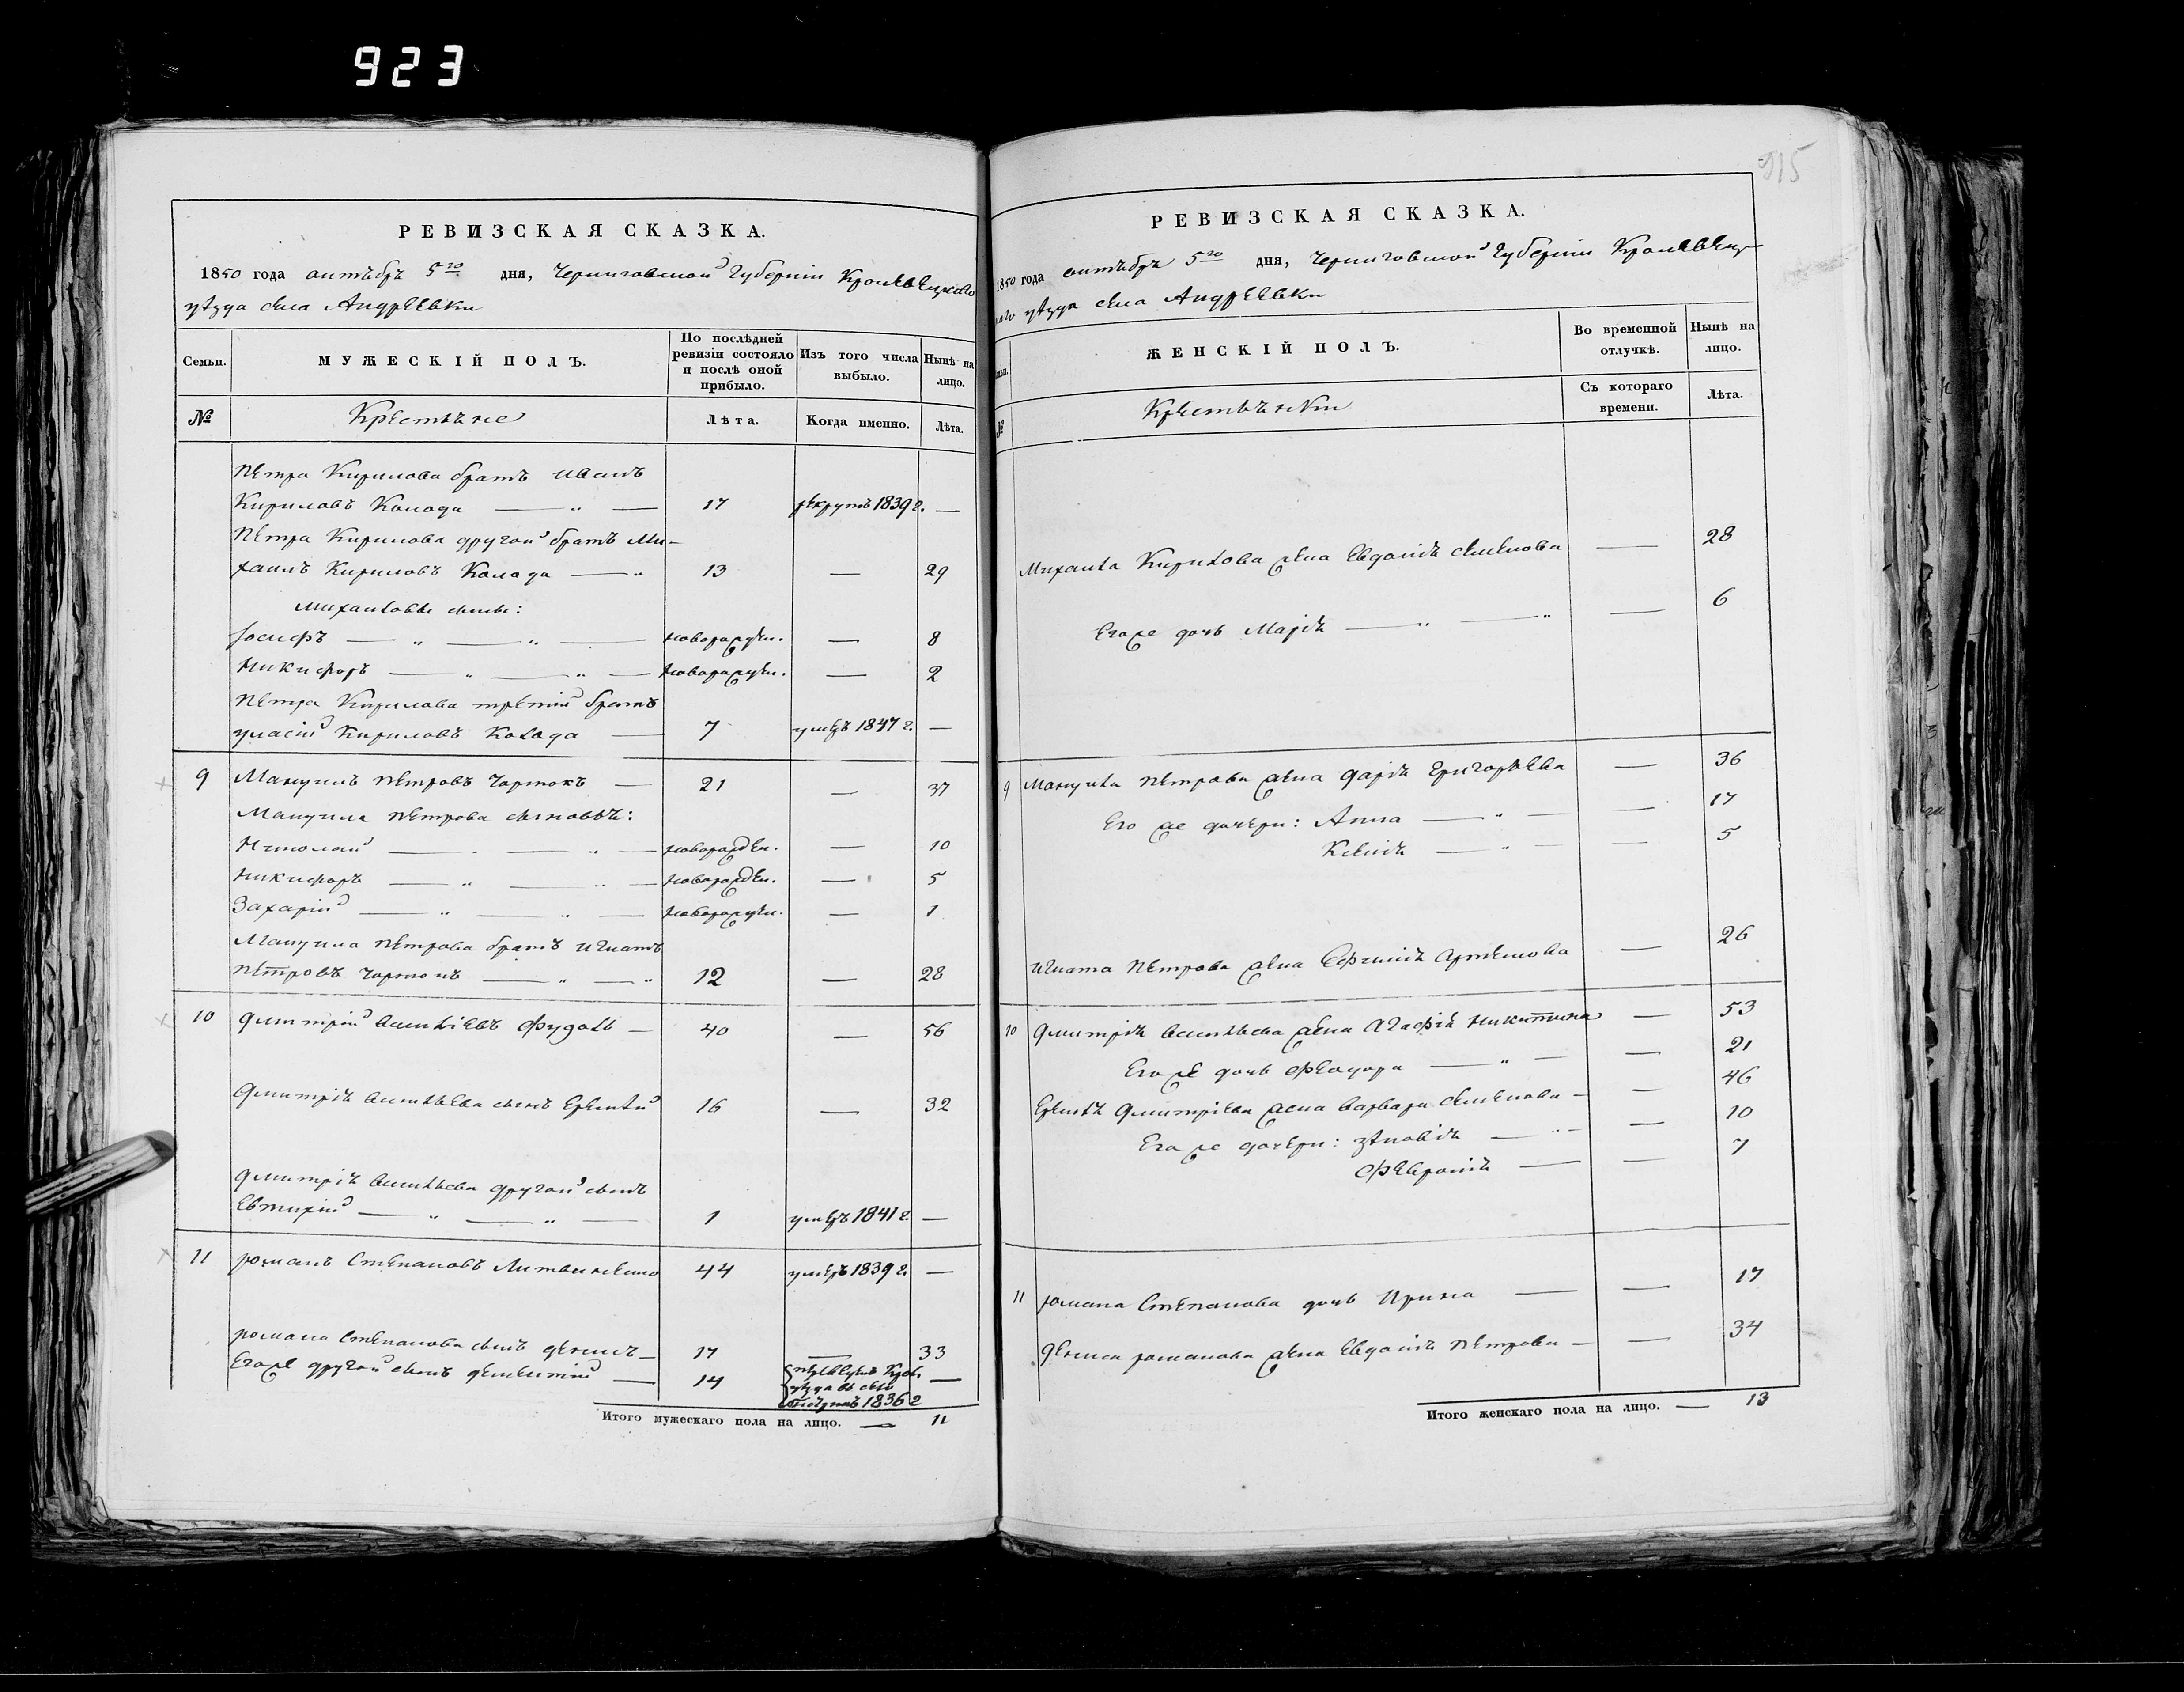 923
РЕВИЗСКАЯ СКАЗКА.
1850 года октября 5го дня, Черниговской Губерніи Кролевецкаго
уѣзда села Андреевки
Семьи. МУЖЕСКІЙ ПОЛЪ. По послѣдней ревизіи состояло и послѣ оной прибыло. Изъ того числа выбыло. Нынѣ на лицо.
№ Крестьяне Лѣта. Когда именно. Лѣта.
Петра Кирилова братъ Иванъ
Кириловъ Колода — „ — 17 рекрутъ 1839 г. —
Петра Кирилова другой братъ Ми-
хаилъ Кириловъ Колода — „ 13 — 29
Михаиловы сыны:
Іосифъ — „ — „ — новорожден. — 8
Никифоръ — „ — „ — новорожден. — 2
Петра Кирилова третій братъ
Уласій Кириловъ Колода — 7 умеръ 1847 г. —
9 Мануилъ Петровъ Чортокъ — 21 — 37
Мануила Петрова сыновья:
Николай — „ — „ — новорожден. — 10
Никифоръ — „ — „ — новорожден. — 5
Захарій — „ — „ — новорожден. — 1
Мануила Петрова братъ Игнатъ
Петровъ Чортокъ — „ — „ 12 — 28
10 Дмитрій Васильевъ Фудоль — 40 — 56
Дмитрія Васильева сынъ Еремѣй 16 — 32
Дмитрія Васильева другой сынъ
Евтихій — „ — „ — 1 умеръ 1841 г. —
11 Романъ Степановъ Литвиненко 44 умеръ 1839 г. —
Романа Степанова сынъ Денисъ — 17 — 33
Его же другой сынъ Дементій — 14 уѣзда въ село 1836 г —
Итого мужескаго пола на лицо. — 11
915
РЕВИЗСКАЯ СКАЗКА.
1850 года октября 5го дня, Черниговской Губерніи Кролевец-
каго уѣзда села Андреевки
ЖЕНСКІЙ ПОЛЪ. Во временной отлучкѣ. Нынѣ на лицо.
№ Крестьянки Съ котораго времени. Лѣта.
Михаила Кирилова жена Евдокія Семенова — 28
Его же дочь Марія — „ — „ — 6
9 Мануила Петрова жена Дарія Григорьева — 36
Его же дочери: Анна — „ — — 17
Ксенія — „ — — 5
Игната Петрова жена Ефимія Артемова — 26
10 Дмитрія Васильева жена Агафія Никитина — 53
Его же дочь Феодора — „ — — 21
Еремѣя Дмитріева жена Варвара Семенова — — 46
Его же дочери: Зѣновія — „ — — 10
Февронія — — 7
11 Романа Степанова дочь Ирина — — 17
Дениса Романова жена Евдокія Петрова — — 34
Итого женскаго пола на лицо. — 13